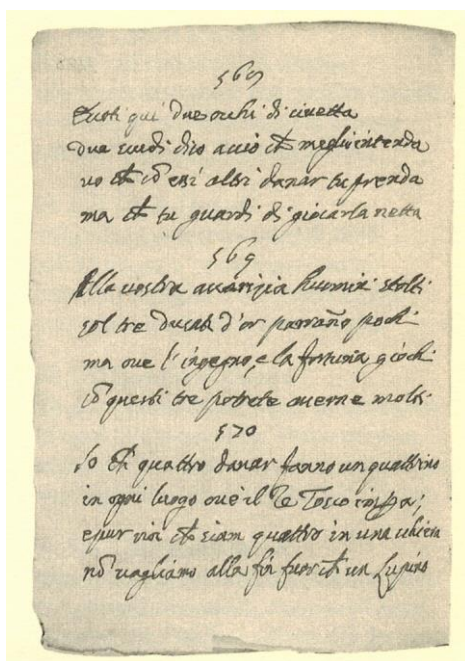 568
Eccoti qui due occhi di civetta
due scudi dico acciò ch meglio intenda
vo ch cō essi altri danar tu prenda
ma ch tu guardi di giocarla netta
569
Alla vostra avarizia huomini stolti
sol tre ducati d'or parrāno pochi
ma ove l'ingegno, e la fortuna giochi
cō questi tre potrete averne molti
570
So ch quattro danar fanno un quattrino
in ogni luogo ov'è il Re Tosco impera;
e pur noi ch siam quattro in una schiera
nō vagliamo alla fin fuor ch un Lupino